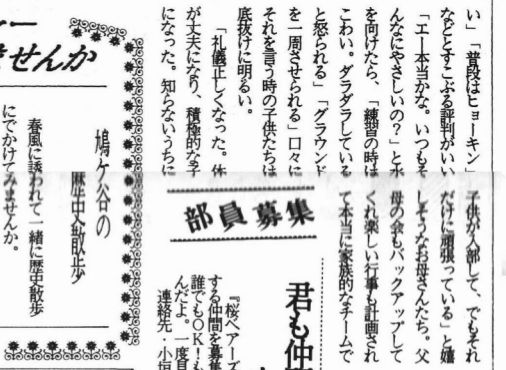 い」「普段はヒョーキン」
などとすこぶる評判がいい
「エー本当かな。いつもそ
んなにやさしいの?」と水
を向けたら、「練習の時は
こわい。ダラダラしている
と怒られる」「グラウンド
を一周させられる」口々に
それを言う時の子供たちは
底抜けに明るい。
「礼儀正しくなった。体
が丈夫になり、積極的な子
になった。知らないうちに
子供が入部して、でもそれ
だけに頑張っている」と嬉
しそうなお母さんたち。父
母の会もバックアップして
くれ楽しい行事も計画され
て本当に家族的なチームで
部員募集
君も仲
『桜ベアーズ
する仲間を募集
誰でもOK!も
んだよ。一度見
連絡先・小垣
せんか
鳩ケ谷の
歴史散歩
春風に誘われて一緒に歴史散歩
にでかけてみませんか。